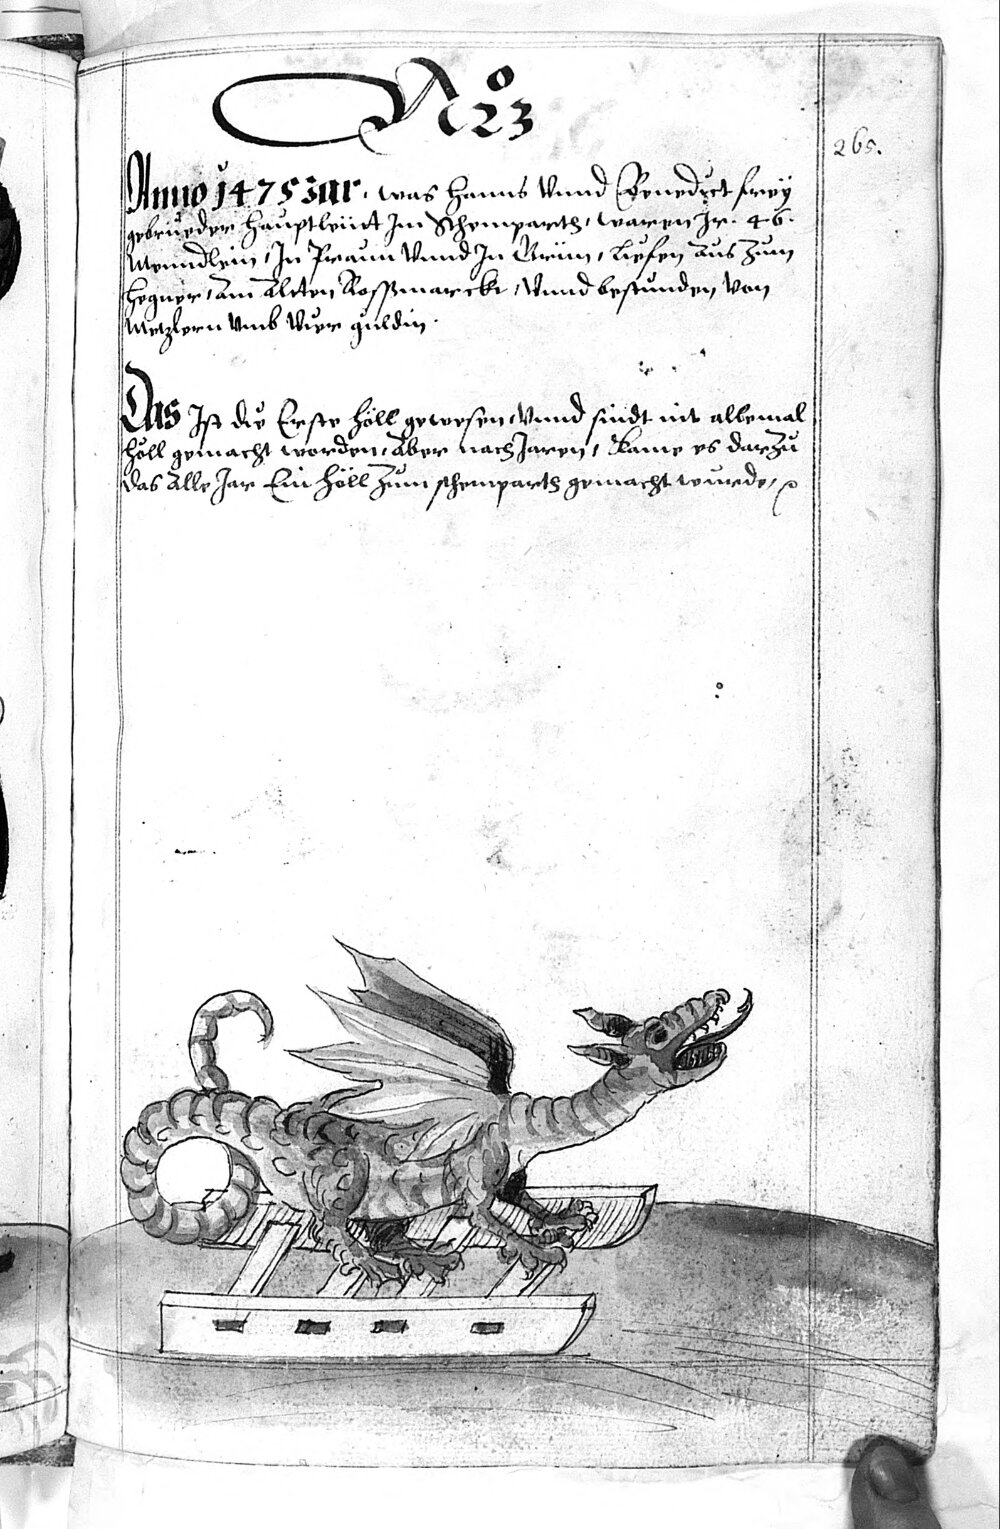 No 23
265.
Anno 1475 Jar, was Hanns Vnnd Benedict frey
gebrueder Hauptleüt Im Schemparth, waren Jr. 46.
Menndlein, In Praun Vnnd In Grün, Liefen aus Zum
Hegner, am Altten Rossmarckt, Vnnd bestunden Von
Metzlern vmb Vier guldin.
Das Ist die Erste Höll gewesen, Vnnd sindt nit allemal
Höll gemacht worden, Aber nach Jaren, Kame es darzu
das alle Jar Ein Höll Zum schemparth gemacht wurde,